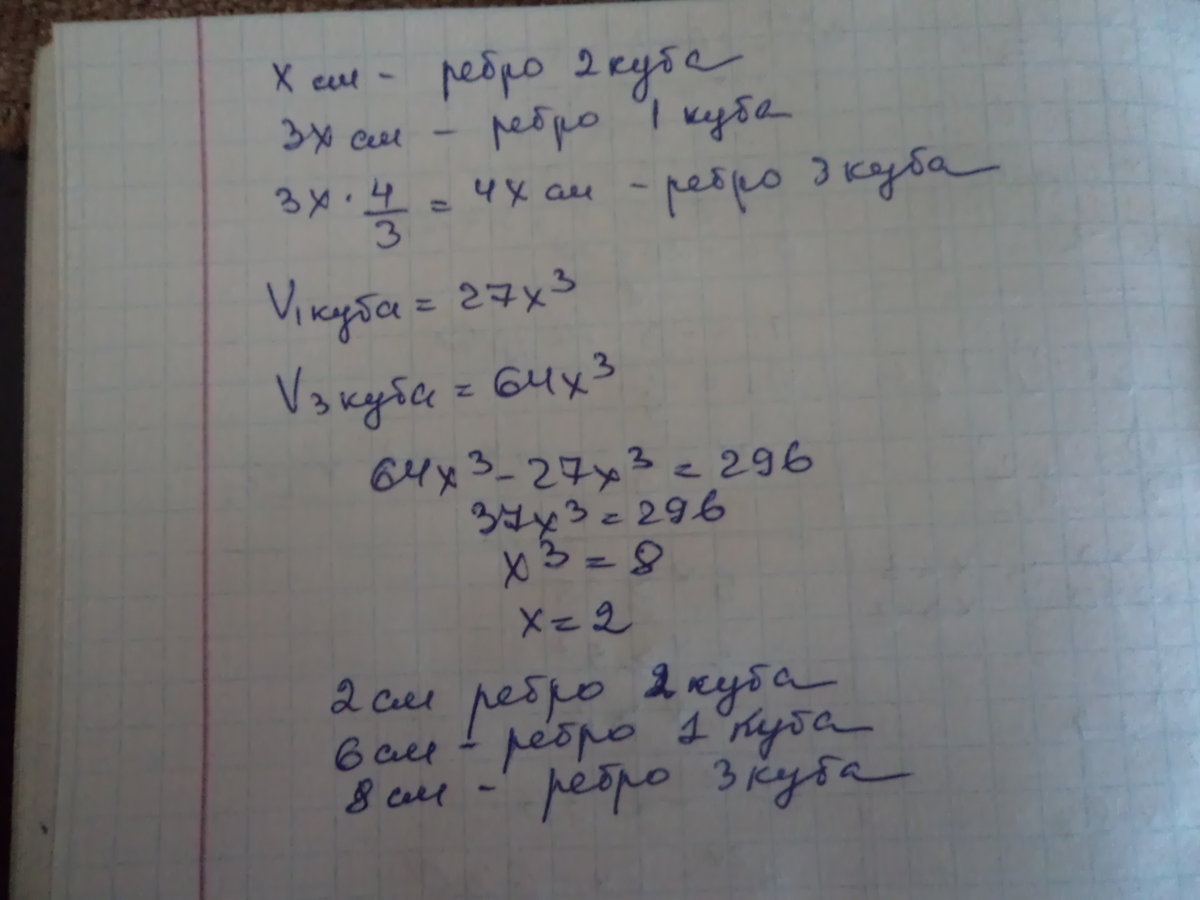 x см - ребро 2 куба
3x см - ребро 1 куба
3x · 4/3 = 4x см - ребро 3 куба
V₁ куба = 27x³
V₃ куба = 64x³
64x³ - 27x³ = 296
37x³ = 296
x³ = 8
x = 2
2 см ребро 2 куба
6 см - ребро 1 куба
8 см - ребро 3 куба